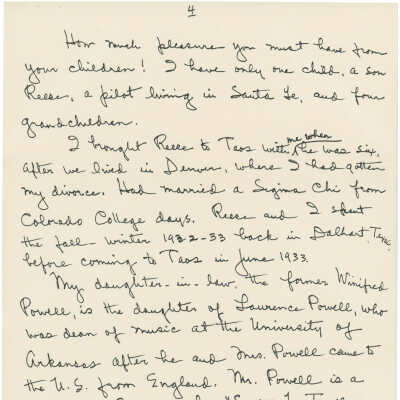 4
How much pleasure you must have from
your children! I have only one child, a son
Reece, a pilot living in Santa Fe, and four
grandchildren.
I brought Reece to Taos with me when he was six,
after we lived in Denver, where I had gotten
my divorce. Had married a Sigma Chi from
Colorado College days. Reece and I spent
the fall winter 1932-33 back in Dalhart, Tex.
before coming to Taos in June 1933.
My daughter-in-law, the former Winifred
Powell, is the daughter of Laurence Powell, who
was dean of music at the University of
Arkansas after he and Mrs. Powell came to
the U.S. from England. Mr. Powell is a